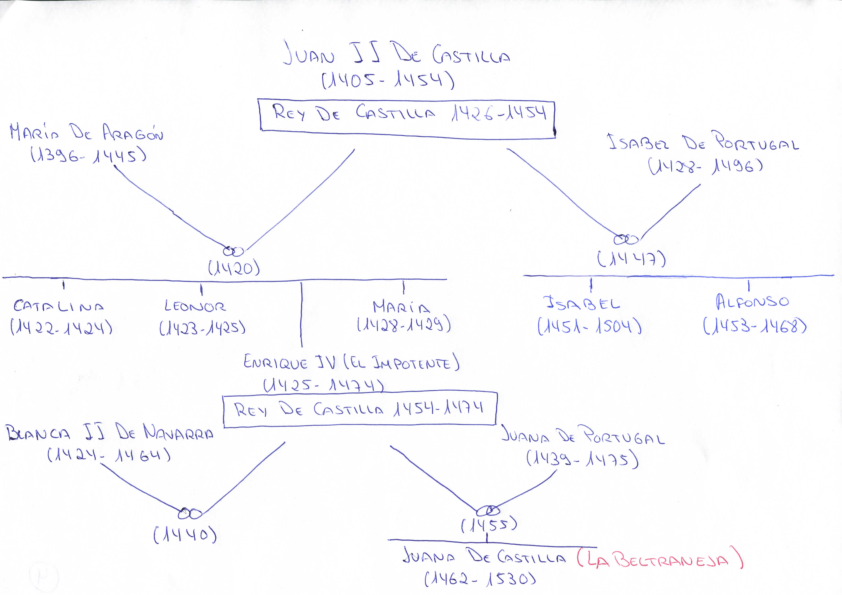 JUAN II DE CASTILLA
(1405-1454)
REY DE CASTILLA 1426-1454
MARÍA DE ARAGÓN
(1396-1445)
ISABEL DE PORTUGAL
(1428-1496)
(1420)
(1447)
CATALINA
(1422-1424)
LEONOR
(1423-1425)
MARÍA
(1428-1429)
ISABEL
(1451-1504)
ALFONSO
(1453-1468)
ENRIQUE IV (EL IMPOTENTE)
(1425-1474)
REY DE CASTILLA 1454-1474
BLANCA II DE NAVARRA
(1424-1464)
JUANA DE PORTUGAL
(1439-1475)
(1440)
(1455)
JUANA DE CASTILLA (LA BELTRANEJA)
(1462-1530)